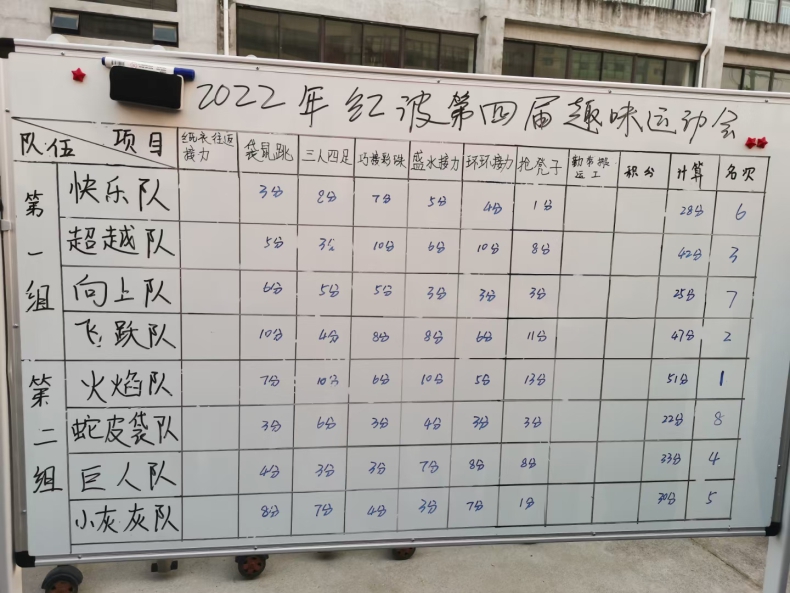 2022年红波第四届趣味运动会
队伍 项目 纸衣往返接力 袋鼠跳 三人四足 巧接彩珠 盛水接力 环环接力 抢凳子 勤劳搬运工 积分 计算 名次
第一组
快乐队 3分 8分 7分 5分 4分 1分 28分 6
超越队 5分 3分 10分 6分 10分 8分 42分 3
向上队 6分 5分 5分 3分 3分 3分 25分 7
飞跃队 10分 4分 8分 8分 6分 11分 47分 2
第二组
火焰队 7分 10分 6分 10分 5分 13分 51分 1
蛇皮袋队 3分 6分 3分 4分 3分 3分 22分 8
巨人队 4分 3分 3分 7分 8分 8分 33分 4
小灰灰队 8分 7分 4分 3分 7分 1分 30分 5